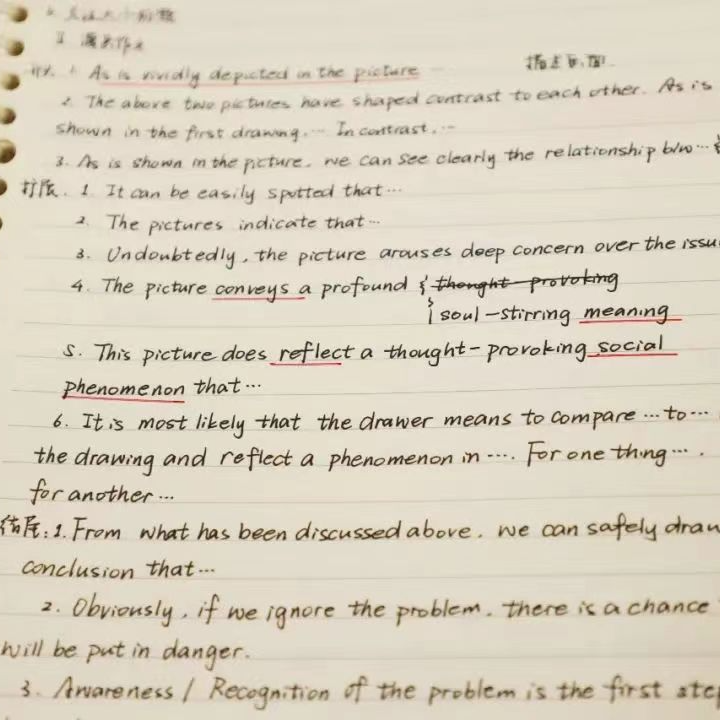 1. As is vividly depicted in the picture
2. The above two pictures have shaped contrast to each other. As is
shown in the first drawing. ... In contrast. ...
3. As is shown in the picture. we can see clearly the relationship b/w ...
1. It can be easily spotted that ...
2. The pictures indicate that ...
3. Undoubtedly, the picture arouses deep concern over the issu
4. The picture conveys a profound { thought-provoking
soul-stirring meaning
5. This picture does reflect a thought-provoking social
phenomenon that ...
6. It is most likely that the drawer means to compare ... to ...
the drawing and reflect a phenomenon in .... For one thing ... .
for another ...
结尾: 1. From what has been discussed above. we can safely draw
conclusion that ...
2. Obviously, if we ignore the problem. there is a chance
will be put in danger.
3. Awareness / Recognition of the problem is the first step